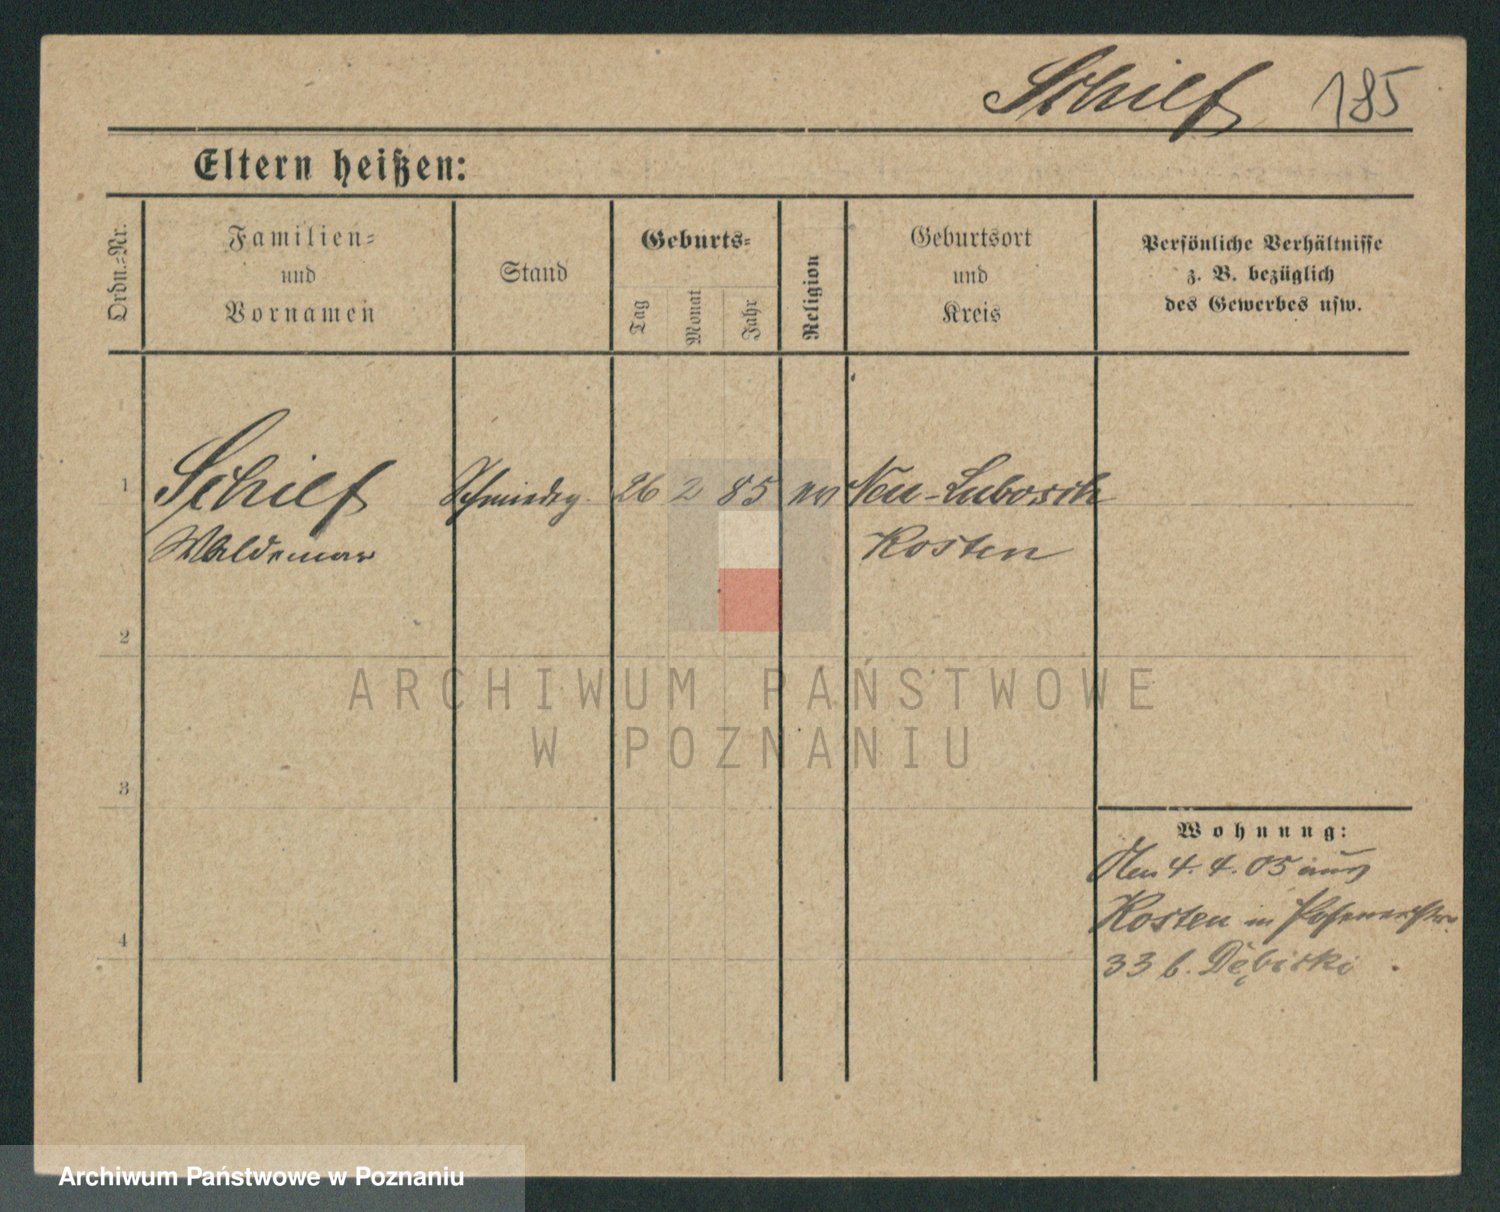 Schilf 185
Eltern heißen:
Ordn.=Nr.
Familien=
und
Vornamen
Stand
Geburts=
Tag
Monat
Jahr
Religion
Geburtsort
und
Kreis
Persönliche Verhältnisse
z. B. bezüglich
des Gewerbes usw.
1 Schilf Schmiedeg. 26 2 85 ev Neu-Lubosch
Waldemar Kosten
2
3
4
ARCHIWUM PAŃSTWOWE
W POZNANIU
Wohnung:
4. 4. 05 aus
Kosten in Posenerstr.
33 b. Dębiski
Archiwum Państwowe w Poznaniu